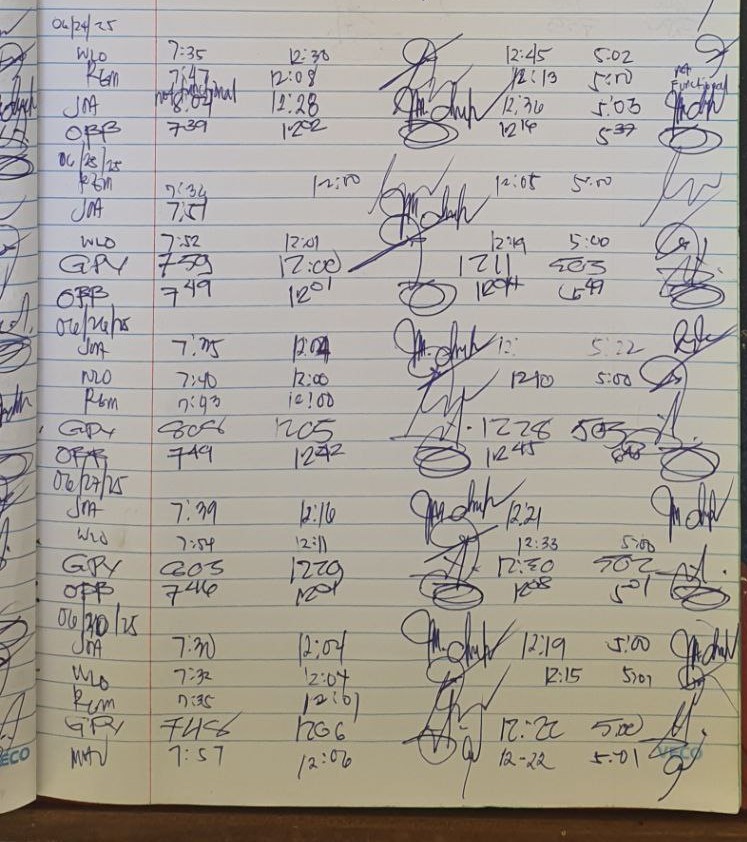 06/24/25
WLO 7:35 12:30 12:45 5:02
REM 7:47 12:08 12:13 5:00 not functional
JMA not functional 8:04 12:28 12:36 5:03
OBB 739 1202 1216 537
06/25/25
REM 7:36 12:00 12:05 5:00
JMA 7:57
WLO 7:52 12:01 12:19 5:00
GPY 759 12:00 1211 503
OBB 749 1201 549
06/26/25
JMA 7:35 12: 5:22
WLO 7:40 12:00 1210 5:00
REM 7:43 12:00
GPY 1205 1228 503
OBB 749 1245
06/27/25
JMA 7:39 12:16 12:21
WLO 7:54 12:11 12:33 5:00
GPY 803 1229 12:30 502
OBB 746 1201 1208 501
06/30/25
JMA 7:30 12:04 12:19 5:00
WLO 7:32 12:04 12:15 5:01
REM 7:35 12:01
GPY 1206 12:22 5:00
7:57 12:06 12-22 5:01
VECO